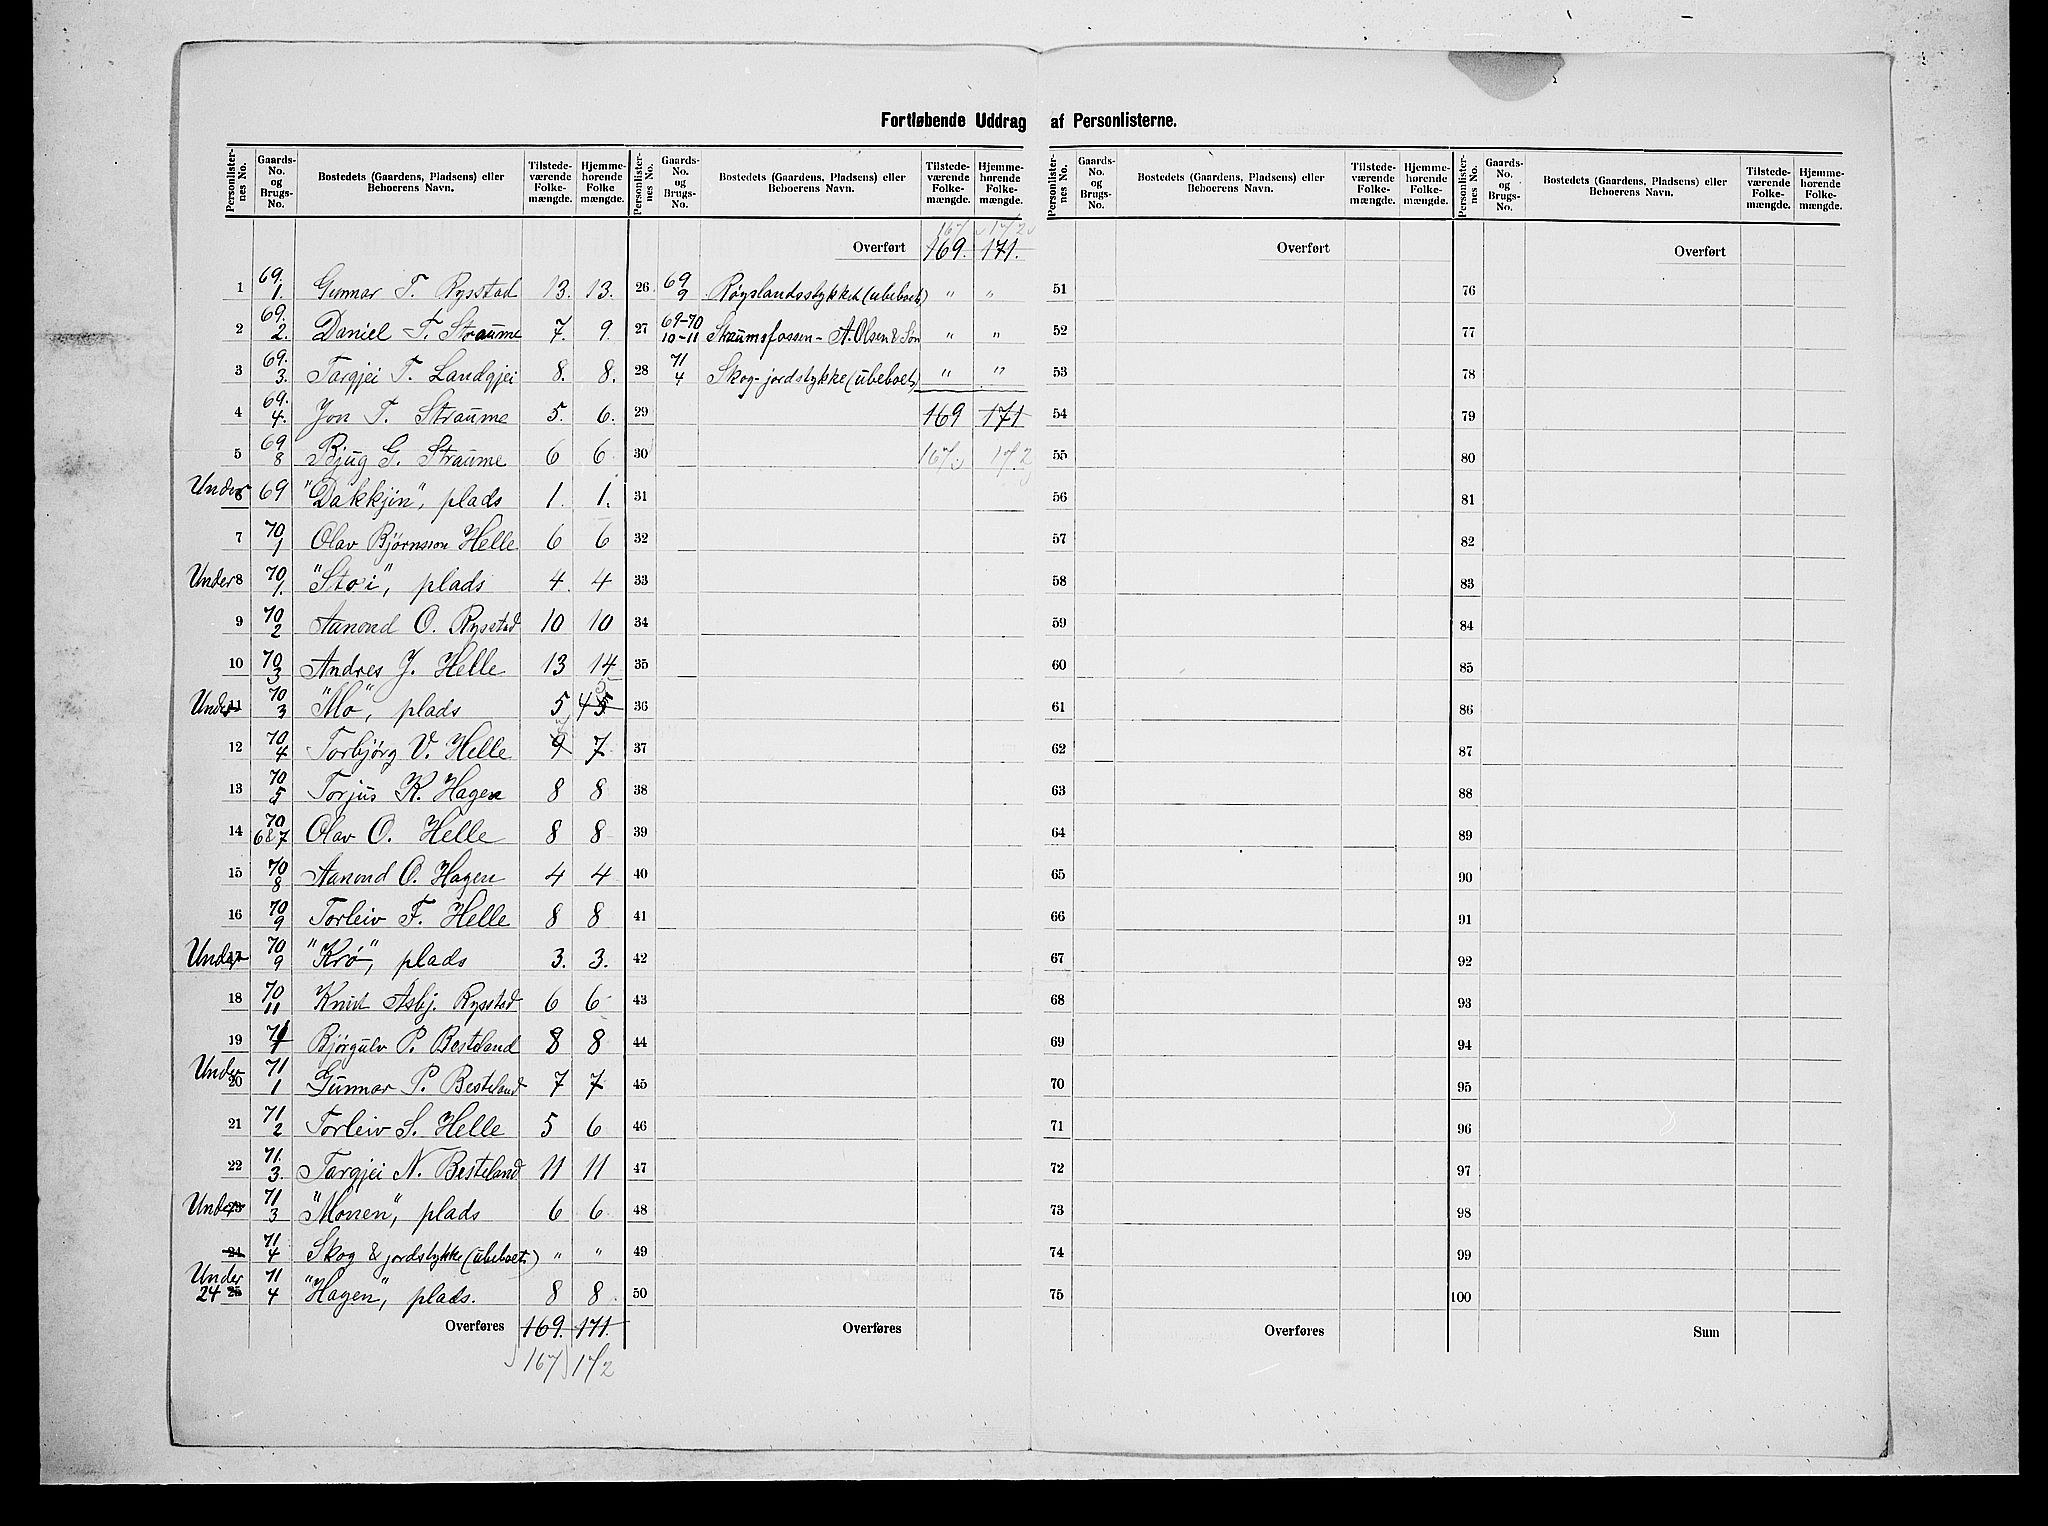 Fortløbende Uddrag af Personlisterne.
Personlister-nes No. | Gaards-No. og Brugs-No. | Bostedets (Gaardens, Pladsens) eller Beboerens Navn. | Tilstede-værende Folke-mængde. | Hjemme-hørende Folke mængde.
1 69. 1. Gunnar T. Rysstad 13. 13.
2 69. 2. Daniel T. Straume 7. 9.
3 69. 3. Targjei T. Landgjei 8. 8.
4 69. 4. Jon T. Straume 5. 6.
5 69 8 Bjug G. Straume 6 6
Under 6 69 "Dakkjin", plads 1. 1.
7 70 1 Olav Bjørnsson Helle 6 6
Under 8 70 1. "Stoi", plads 4. 4
9 70 2 Aanond O. Rysstad 10 10
10 70 3 Andres J. Helle 13 14
Under 11 70 3 "Mo", plads 5 5
12 70 4 Torbjørg V. Helle 9 7
13 70 5 Torjus K. Hagen 8 8
14 70 6&7 Olav O. Helle 8 8
15 70 8 Aanond O. Hagen 4 4
16 70 9 Torleiv F. Helle 8 8
Under 17 70 9 "Krö", plads 3. 3.
18 70 11 Knut Asbj. Rysstad 6 6
19 71 1 Bjørgulv P. Besteland 8 8
Under 20 71 1 Gunnar P. Besteland 7 7
21 71 2 Torleiv S. Helle 5 6
22 71. 3. Targjei N. Besteland 11 11
Under 23 71 3 "Monen", plads 6 6
24 71 4 Skog & jordstykke (ubeboet) " "
Under 24 25 71 4 "Hagen", plads. 8 8
Overføres 169. 171.
167 172
Personlister-nes No. | Gaards-No. og Brugs-No. | Bostedets (Gaardens, Pladsens) eller Beboerens Navn. | Tilstede-værende Folke-mængde. | Hjemme-hørende Folke-mængde.
167 172
Overført 169. 171.
26 69 9 Røyslandsstykket (ubeboet) " "
27 69-70 10-11 Straumsfossen - A. Olsen & Søn " "
28 71 4 Skog-jordstykke (ubeboet) " "
29 169 171
30 167 172
31
32
33
34
35
36
37
38
39
40
41
42
43
44
45
46
47
48
49
50
Overføres
Personlister-nes No. | Gaards-No. og Brugs-No. | Bostedets (Gaardens, Pladsens) eller Beboerens Navn. | Tilstede-værende Folke-mængde. | Hjemme-hørende Folke-mængde.
Overført
51
52
53
54
55
56
57
58
59
60
61
62
63
64
65
66
67
68
69
70
71
72
73
74
75
Overføres
Personlister-nes No. | Gaards-No. og Brugs-No. | Bostedets (Gaardens, Pladsens) eller Beboerens Navn. | Tilstede-værende Folke-mængde. | Hjemme-hørende Folke-mængde.
Overført
76
77
78
79
80
81
82
83
84
85
86
87
88
89
90
91
92
93
94
95
96
97
98
99
100
Sum